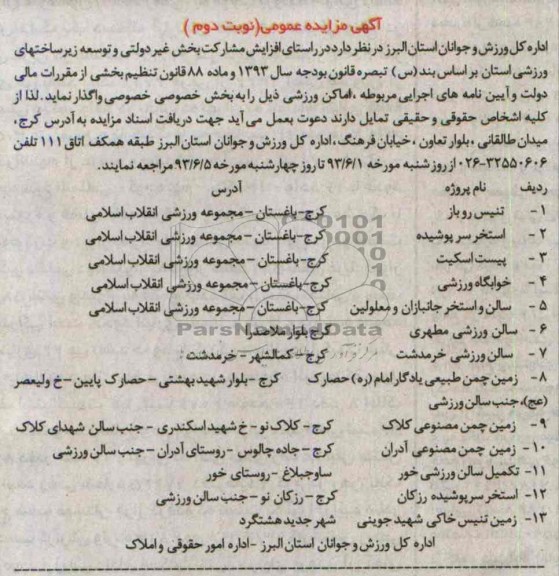 آگهی مزایده عمومی(نوبت دوم )
اداره کل ورزش و جوانان استان البرز در نظر دارد در راستای افزایش مشارکت بخش غیر دولتی و توسعه زیر ساختهای
ورزشی استان بر اساس بند (س) تبصره قانون بودجه سال ۱۳۹۳ و ماده ۸۸ قانون تنظیم بخشی از مقررات مالی
دولت و آیین نامه های اجرایی مربوطه ،اماکن ورزشی ذیل را به بخش خصوصی خصوصی واگذار نماید. لذا از
کلیه اشخاص حقوقی و حقیقی تمایل دارند دعوت بعمل می آید جهت دریافت اسناد مزایده به آدرس کرج،
میدان طالقانی ، بلوار تعاون ، خیابان فرهنگ، اداره کل ورزش و جوانان استان البرز طبقه همکف اتاق ۱۱۱ تلفن
۰۲۶-۳۲۵۵۰۶۰۶ از روز شنبه مورخه ۹۳/۶/۱ تا روز چهارشنبه مورخه ۹۳/۶/۵ مراجعه نمایند.
ردیف نام پروژه آدرس
۱- تنیس رو باز کرج- باغستان – مجموعه ورزشی انقلاب اسلامی
۲- استخر سر پوشیده کرج-باغستان – مجموعه ورزشی انقلاب اسلامی
۳- پیست اسکیت کرج- باغستان – مجموعه ورزشی انقلاب اسلامی
۴- خوابگاه ورزشی کرج-باغستان – مجموعه ورزشی انقلاب اسلامی
۵- سالن و استخر جانبازان و معلولین کرج-باغستان – مجموعه ورزشی انقلاب اسلامی
۶- سالن ورزشی مطهری کرج بلوار ملاصدرا
ParsNamadData
۷- سالن ورزشی خرمدشت کرج – کمالشهر – خرمدشت
۸- زمین چمن طبیعی یادگار امام (ره) حصارک کرج – بلوار شهید بهشتی – حصارک پایین – خ ولیعصر
(عج)، جنب سالن ورزشی
۹- زمین چمن مصنوعی کلاک کرج- کلاک نو - خ شهید اسکندری – جنب سالن شهدای کلاک
۱۰- زمین چمن مصنوعی آدران کرج – جاده چالوس – روستای آدران – جنب سالن ورزشی
۱۱- تکمیل سالن ورزشی خور ساوجبلاغ – روستای خور
۱۲- استخر سرپوشیده رزکان کرج – رزکان نو – جنب سالن ورزشی
۱۳- زمین تنیس خاکی شهید جوینی شهر جدید هشتگرد
اداره کل ورزش و جوانان استان البرز –اداره امور حقوقی و املاک